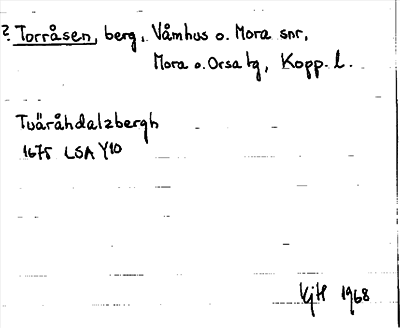 ? Torråsen, berg, Våmhus o. Mora snr,
Mora o. Orsa tg, Kopp. l.
Tväråhdalzbergh
1675 LSA Y10
KjH 1968